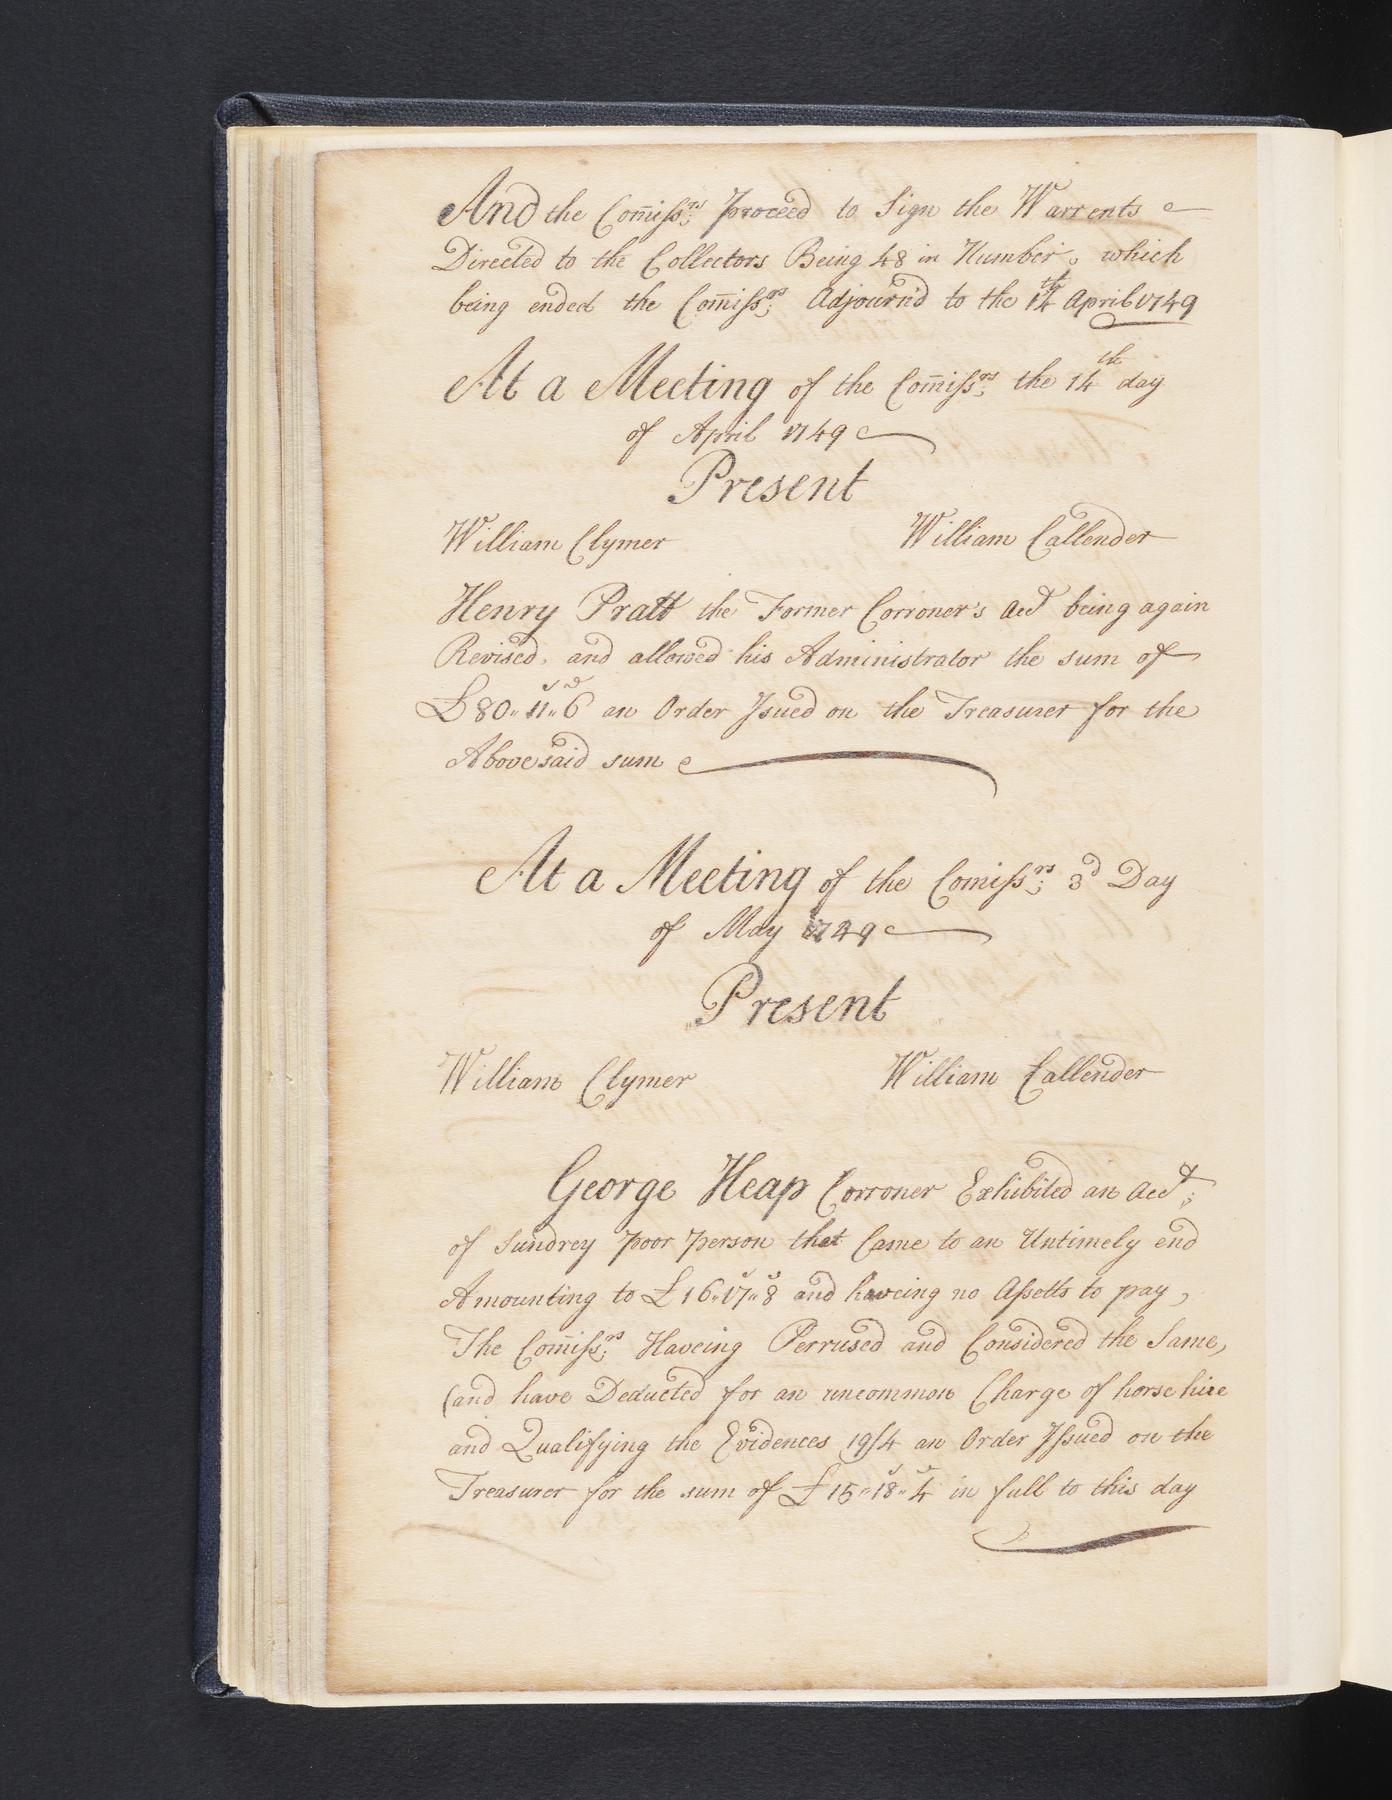 And the Com̄iss:rs proceed to Sign the Warrents
Directed to the Collectors Being 48 in Number, which
being ended the Com̄iss:rs Adjourn'd to the 14th April 1749
At a Meeting of the Com̄iss:rs the 14th day
of April 1749
Present
William Clymer William Callender
Henry Pratt the Former Corroner's Acct being again
Revised, and allowed his Administrator the sum of
£80,,11s,,6d an Order Issued on the Treasurer for the
Abovesaid sum
At a Meeting of the Comiss:rs 3d Day
of May 1749
Present
William Clymer William Callender
George Heap Corroner Exhibited an Acct;
of Sundrey poor person that Came to an Untimely end
Amounting to £16,,17,,8 and haveing no Assetts to pay,
The Com̄iss:rs Haveing Perrused and Considered the Same,
(and have Deducted for an uncommon Charge of horse hire
and Qualifying the Evidences 19/4 an Order Issued on the
Treasurer for the sum of £15,,18,,4 in full to this day